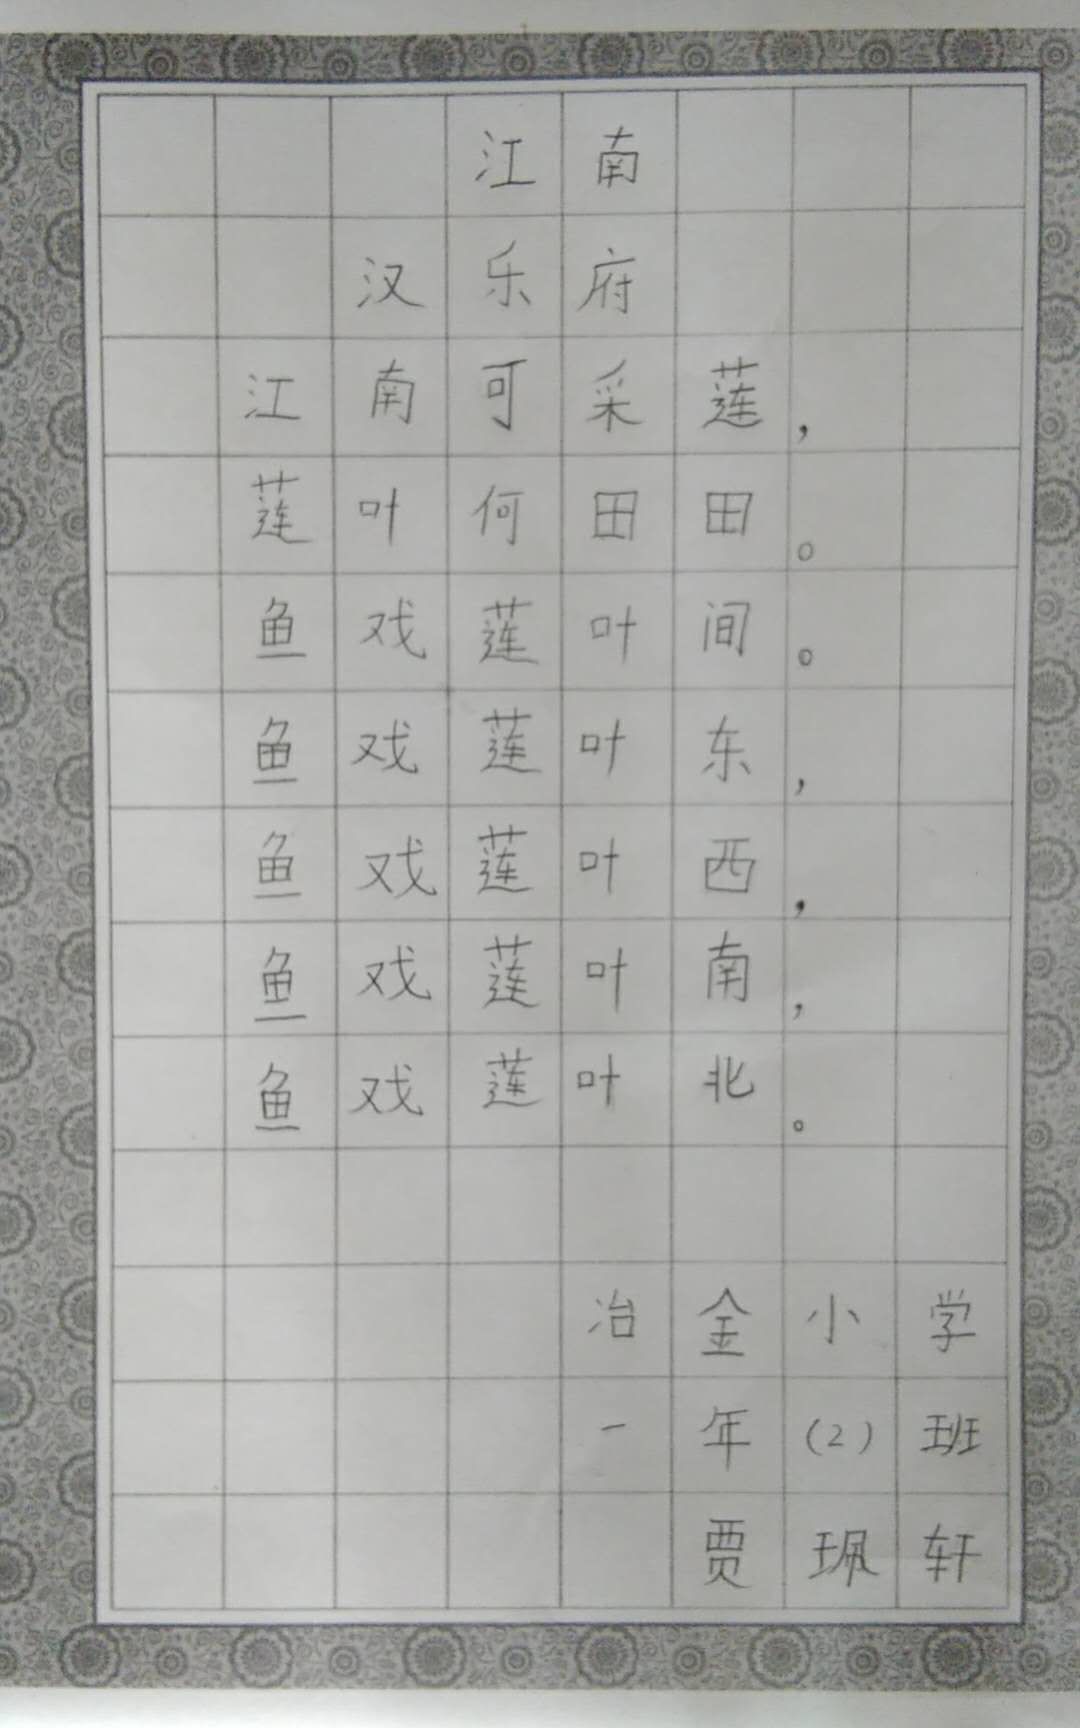 江南
汉乐府
江南可采莲，
莲叶何田田。
鱼戏莲叶间。
鱼戏莲叶东，
鱼戏莲叶西，
鱼戏莲叶南，
鱼戏莲叶北。
冶金小学
一年(2)班
贾珮轩